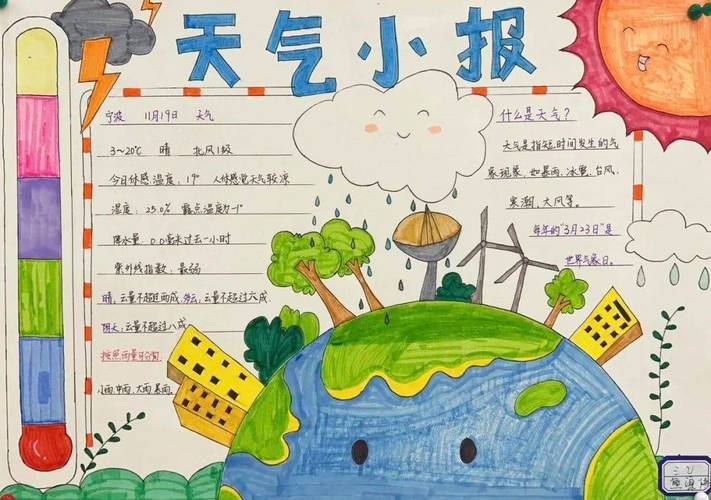 天气小报
宁波 11月19日 天气
3~20℃ 晴 北风1级
今日体感温度：19° 人体感觉天气较凉
湿度：25.0% 露点温度为-1°
降水量：0.0毫米过去一小时
紫外线指数：最弱
晴：云量不超过两成，多云：云量不超过六成.
阴天：云量不超过八成
按照雨量可分为:
小雨，中雨，大雨，暴雨.
什么是天气？
天气是指短时间发生的气
象现象，如暴雨、冰雹、台风、
寒潮、大风等。
每年的"3月23日"是
世界气象日。